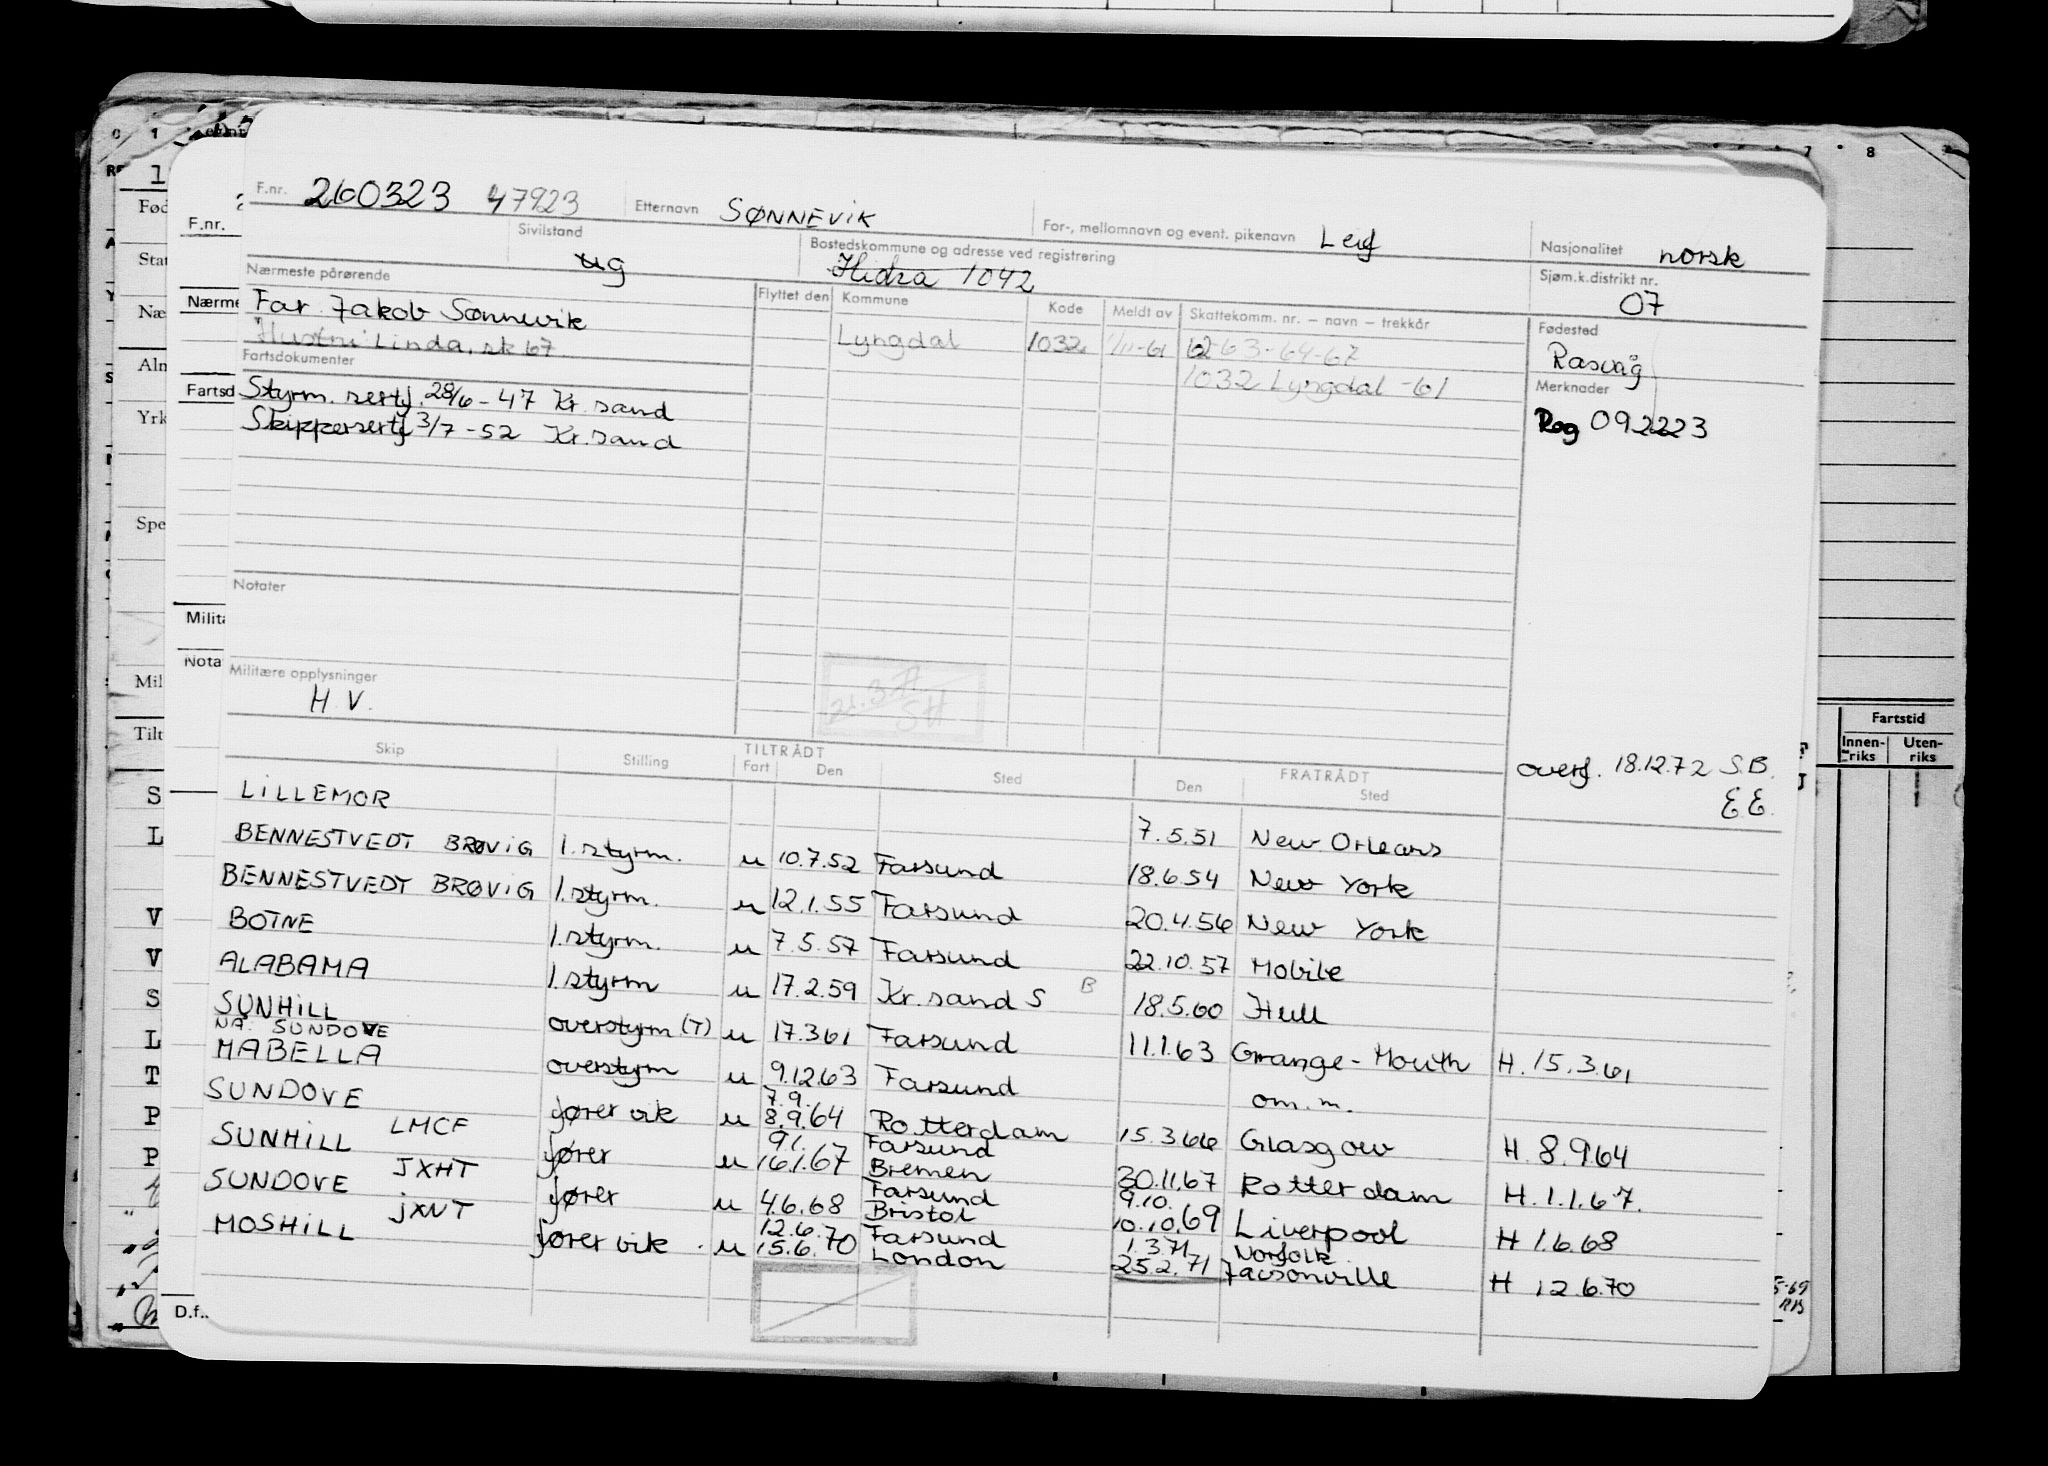 F.nr. 260323 47923 Etternavn SØNNEVIK For-, mellomnavn og event. pikenavn Leif Nasjonalitet norsk
Sivilstand ug Bostedskommune og adresse ved registrering Hidra 1042 Sjøm.k.distrikt nr. 07
Nærmeste pårørende Flyttet den Kommune Kode Meldt av Skattekomm. nr. – navn – trekkår Fødested
Far Jakob Sønnevik
Hustru Linda, sk 67 Lyngdal 1032 1/11-61 62-63-64-67 Rasvåg
1032 Lyngdal -61
Fartsdokumenter Merknader
Styrm. sertf. 28/6 - 47 Kr. sand Reg 092223
Skippersertf 3/7 - 52 Kr. sand
Notater
Militære opplysninger
H.V.
21.3.71
SH
overf. 18.12.72 S.B.
E E.
Skip Stilling TILTRÅDT Fart Den Sted FRATRÅDT Den Sted
LILLEMOR 7.5.51 New Orleans
BENNESTVEDT BRØVIG 1. styrm. u 10.7.52 Farsund 18.6.54 New York
BENNESTVEDT BRØVIG 1. styrm. u 12.1.55 Farsund 20.4.56 New York
BOTNE 1. styrm. u 7.5.57 Farsund 22.10.57 Mobile
ALABAMA 1. styrm u 17.2.59 Kr. sand S B 18.5.60 Hull
SUNHILL
NÅ. SUNDOVE overstyrm (T) u 17.3.61 Farsund 11.1.63 Grange-Mouth H. 15.3.61
MABELLA overstyrm u 9.12.63 Farsund om.m.
SUNDOVE fører vik u 7.9. 8.9.64 Rotterdam 15.3.66 Glasgow H. 8.9.64
SUNHILL LMCF fører u 9.1. 16.1.67 Farsund Bremen 30.11.67 Rotterdam H. 1.1.67.
SUNDOVE JXHT fører u 4.6.68 Farsund Bristol 9.10. 10.10.69 Liverpool H 1.6.68
MOSHILL JXNT fører vik. u 12.6. 15.6.70 Farsund London 1.3.71 25.2.71 Norfolk Jacsonville H 12.6.70
Fartstid
Innenriks Utenriks
F.nr.
Nærme
Fartsd
Milit
Nota
D.f.
Fød
Stat
Næ
Alm
Yrk
Spe
Mil
Tilt